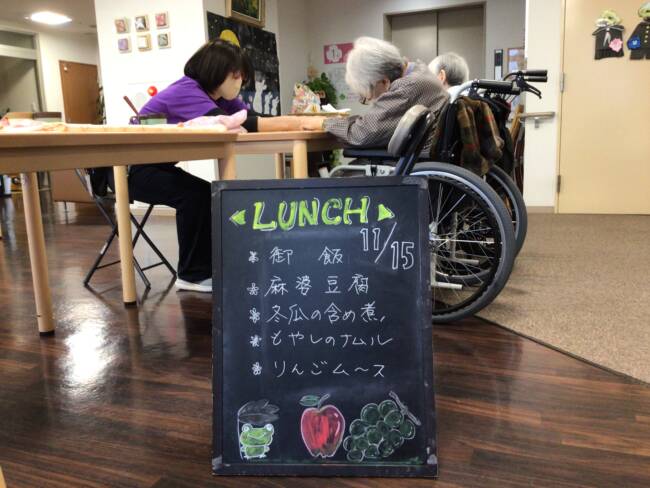 LUNCH
11/15
御飯
麻婆豆腐
冬瓜の含め煮
もやしのナムル
りんごム〜ス